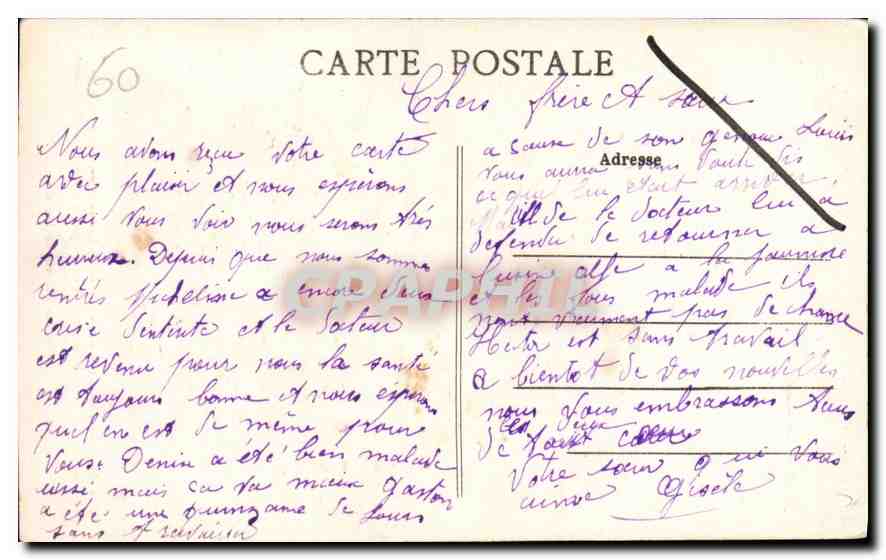 60
CARTE POSTALE
Chers frère et sœur
Nous avons reçu votre carte
avec plaisir et nous espérons
aussi vous voir nous serons très
heureux. Depuis que nous somme
rentrés Micheline a encore deux
crise d'entérite et le docteur
est revenu pour nous la santé
est toujours bonne et nous espérons
qu'il en est de même pour
vous. Denise a été bien malade
aussi mais ca va mieux gaston
a été une quinzaine de jours
sans travailler
a cause de son genou
Adresse
vous aura sans doute dis
ce qui lui était arrivée
de le docteur lui a
defendu de retourner a
l'usine elle a la jaunisse
et les tous malade ils
nont vraiment pas de chance
est sans travail
a bientôt de vos nouvelles
nous vous embrassons tous
de tout cœur
Votre sœur qui vous
aime Gisèle
CPAPHIL